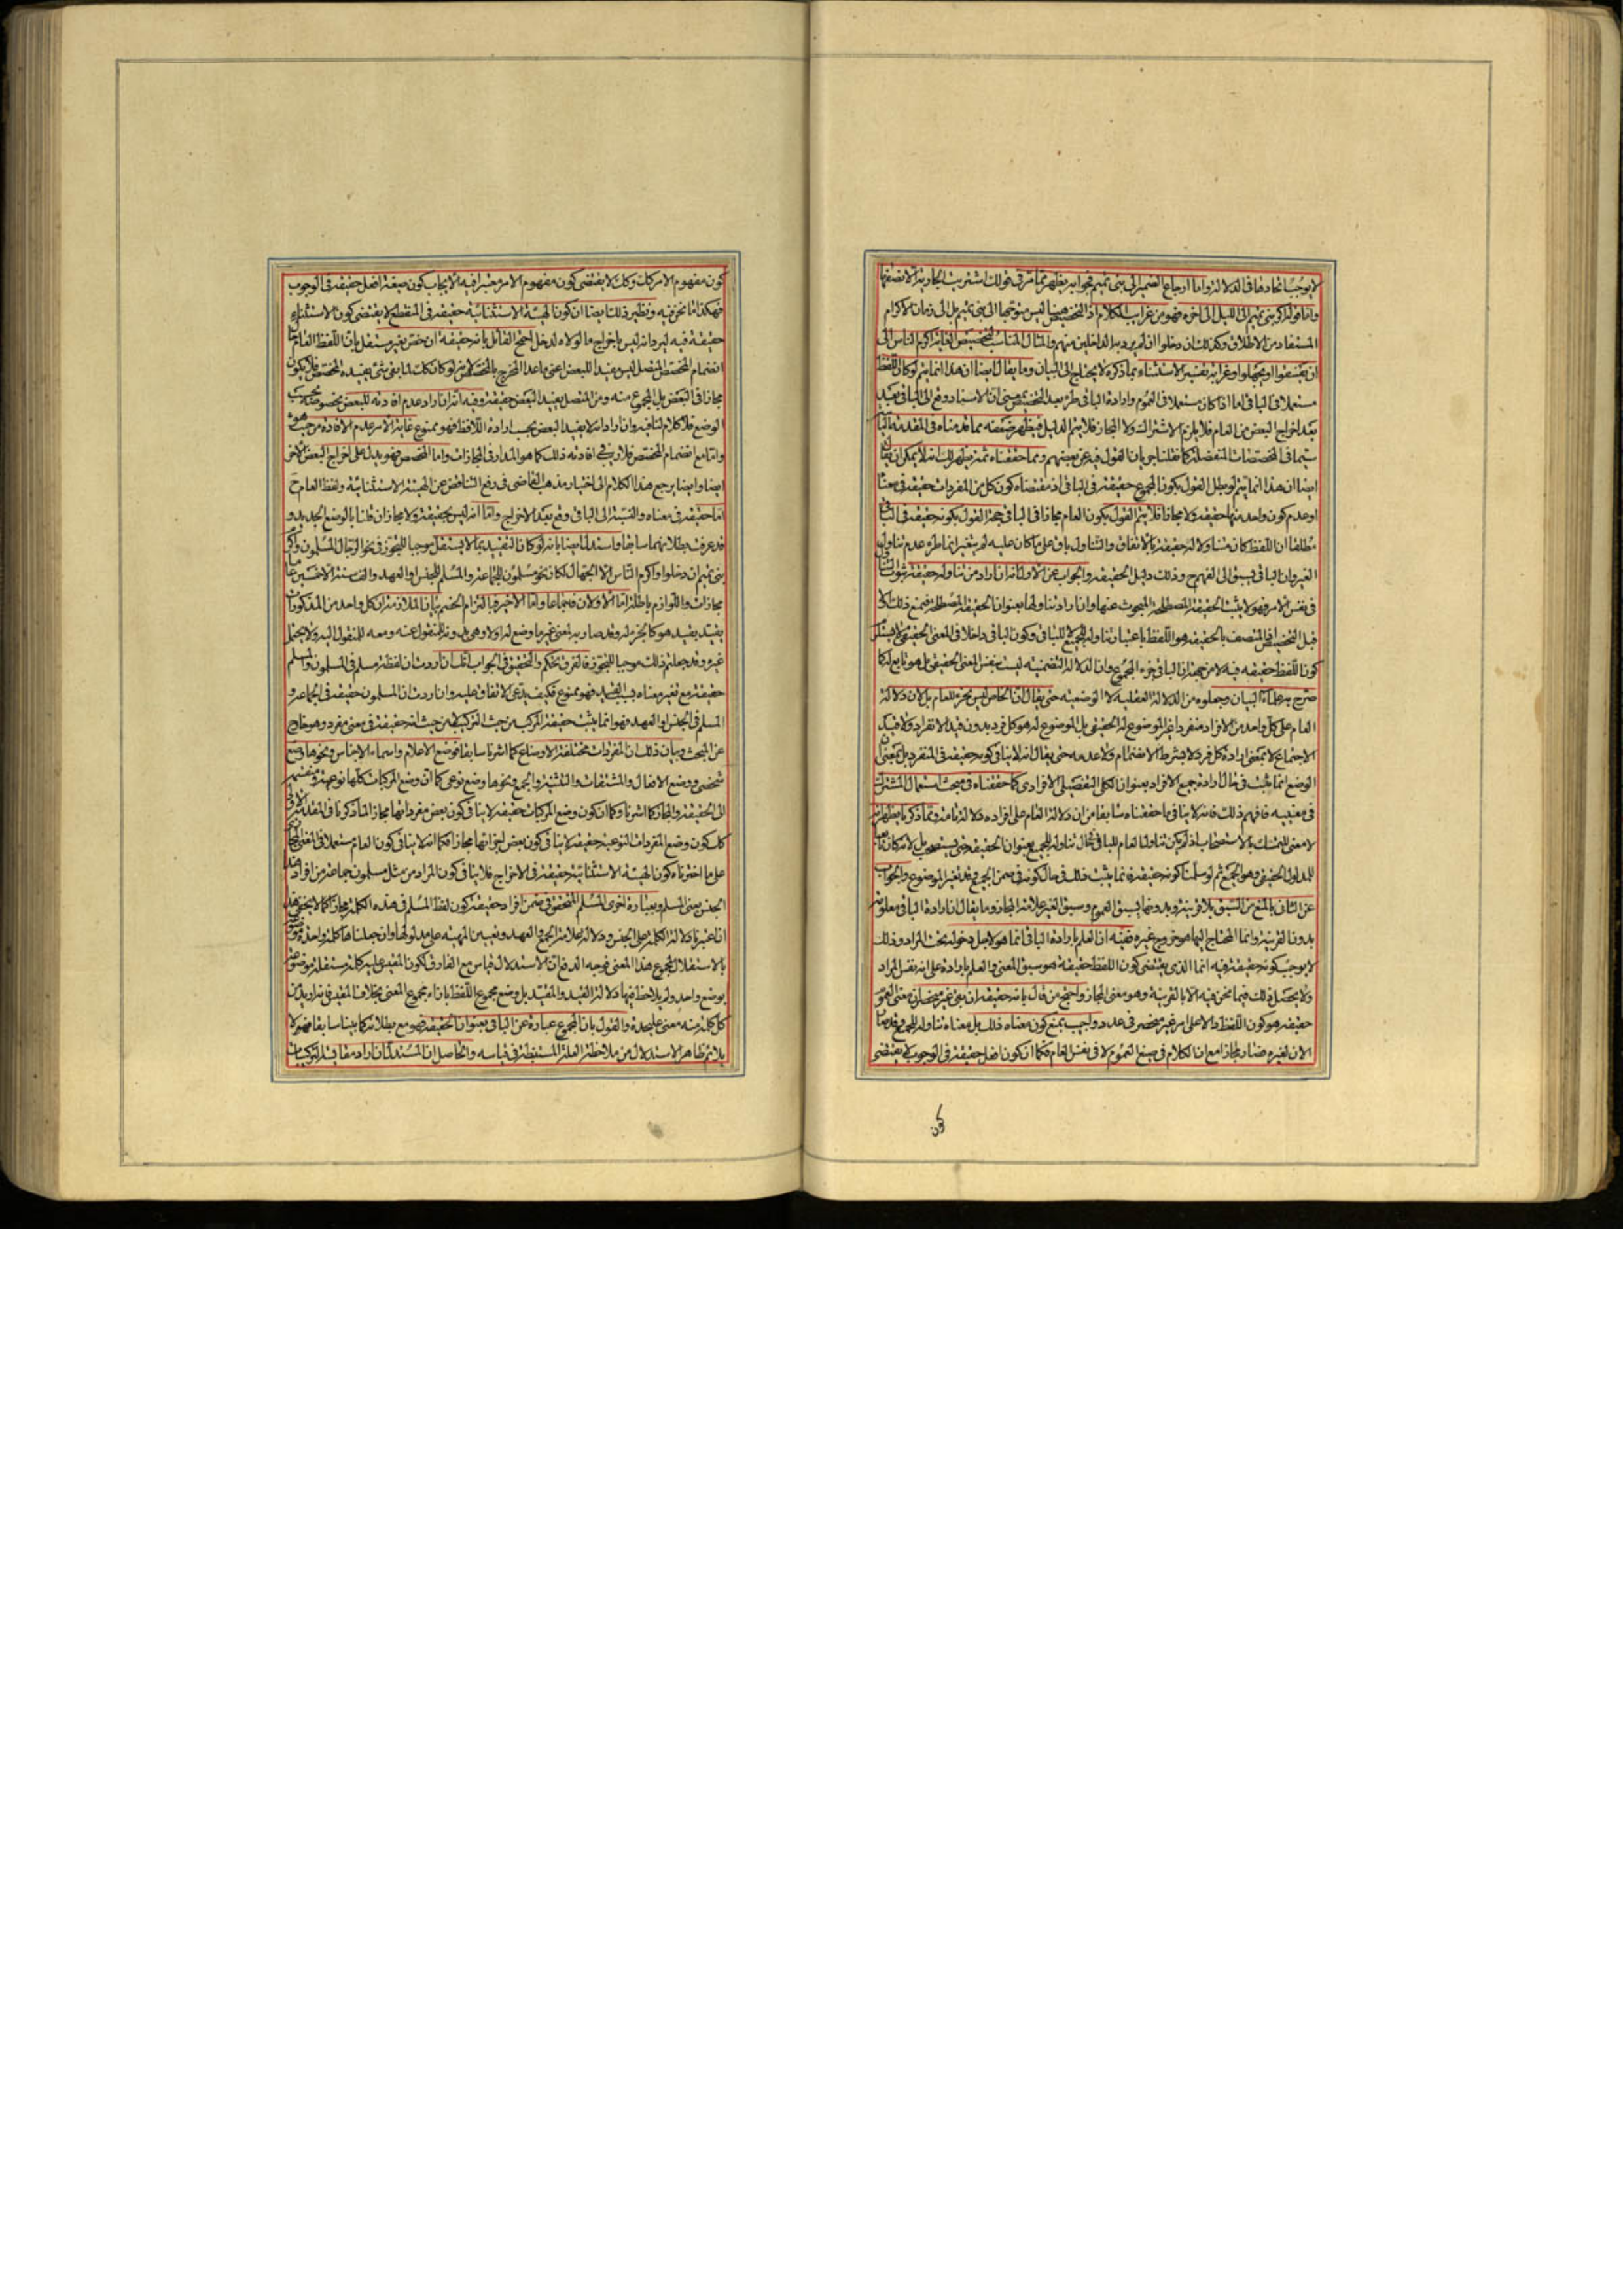 لا يوجب اتحادهما في الدلالة واما ارجاع الضمير الى بني تميم فجوابه يظهر مما مر في قولك اشتريت الجارية الا نصفها
واما قوله اكرم بني تميم الى الليل الى اخره فهو من غرايب الكلام اذ التخصيص هيهنا ليس متوجها الى بني تميم بل الى زمان الاكرام
المستفاد من الاطلاق وكذلك ان دخلوا ان لم يرد به الداخلين منهم والمثال المناسب لتخصيص الغاية اكرم الناس الى
ان يفسقوا او يجهلوا وغرابة تفسير الاستثناء بما ذكره لا يحتاج الى البيان وما يقال ايضا ان هذا انما يتم لو كان اللفظ
مستعملا في الباقي اما اذا كان مستعملا في العموم وارادة الباقي طرء بعد التخصيص بمعنى ان الاسناد وقع الى الباقي بعد
بعد اخراج البعض من العام فلا يلزم الاشتراك ولا المجاز فلا يتم الدليل فيظهر ضعفه مما قدمناه في المقدمة الثانية
سيما في المخصصات المنفصلة كما نقلنا جريان القول فيه عن بعضهم ومما حققناه ثمة يظهر لك انه لا يمكن ان يقال
ايضا ان هذا انما يتم لو بطل القول بكون المجموع حقيقة في الباقي اذ مقتضاه كون كل من المفردات حقيقة في معناه
او عدم كون واحد منها حقيقة ولا مجازا فلا يتم القول بكون العام مجازا في الباقي حجة القول بكونه حقيقة في الباقي
مطلقا ان اللفظ كان متناولا له حقيقة بالاتفاق والتناول باق على ما كان عليه لم يتغير انما طرء عدم تناول
الغير وان الباقي يسبق الى الفهم ح وذلك دليل الحقيقة والجواب عن الاول انه ان اراد من تناوله حقيقة ثبوت التناول
في نفس الامر فهو لا يثبت الحقيقة المصطلحة المبحوث عنها وان اراد تناوله بعنوان الحقيقة المصطلحة فنمنع ذلك
قبل التخصيص اذ المتصف بالحقيقة هو اللفظ باعتبار تناوله للجميع لا للباقي وكون الباقي داخلا في المعنى الحقيقي لا يستلزم
كون اللفظ حقيقة فيه لا من جهة ان الباقي جزء المجموع وان الدلالة التضمنية ليست بنفس المعنى الحقيقي بل هو تابع له كما
صرح به علماء البيان وجعلوه من الدلالة العقلية لا الوضعية حتى يقال ان الخاص ليس بجزء للعام بل لان دلالة
العام على كل واحد من الافراد منفردا غير الموضوع له الحقيقي بل الموضوع له هو كل فرد بدون قيد الانفراد ولا قيد
الاجتماع لا بمعنى ارادة كل فرد لا بشرط الانضمام ولا عدمه حتى يقال انه لا ينافي كونه حقيقة في المنفرد بل بمعنى ان
الوضع انما يثبت في حال ارادة جميع الافراد بعنوان الكلي التفصيلي الافرادي كما حققناه في مبحث استعمال المشترك
في معنييه فافهم ذلك فانه لا ينافي ما حققناه سابقا من ان دلالة العام على افراده دلالة تامة ومما ذكرنا يظهر انه
لا معنى للتمسك بالاستصحاب اذ لم يكن تناول العام للباقي في حال تناوله للجميع بعنوان الحقيقة حتى يستصحب بل لانه كان تابعا
للمدلول الحقيقي وهو الجميع ثم لو سلمنا كونه حقيقة فانما يثبت ذلك في حال كونه في ضمن الجميع وقد تغير الموضوع والجواب
عن الثاني بالمنع من السبق بلا قرينة وبدونها يسبق العموم وسبق الغير علامة المجاز وما يقال ان ارادة الباقي معلومة
بدون القرينة وانما المحتاج اليها هو خروج غيره ففيه ان العلم بارادة الباقي انما هو لاجل دخوله تحت المراد وذلك
لا يوجب كونه حقيقة فيه انما الذي يقتضي كون اللفظ حقيقة هو سبق المعنى والعلم بارادته على انه نفس المراد
ولا يحصل ذلك فيما نحن فيه الا بالقرينة وهو معنى المجاز واحتج من قال بانه حقيقة ان بقي غير منحصر ان معنى العموم
حقيقة هو كون اللفظ دالا على امر غير منحصر في عدد واجيب بمنع كون معناه ذلك بل معناه تناوله للجميع وقد صار
الان لغيره فصار مجازا مع ان الكلام في صيغ العموم لا في نفس العام فكما ان كون افعل حقيقة في الوجوب لا يقتضي
كون
كون مفهوم الامر كك وكك لا يقتضي كون مفهوم الامر معتبرا فيه الايجاب كون صيغة افعل حقيقة في الوجوب
فهكذا ما نحن فيه ونظير ذلك ايضا ان كون الهيئة الاستثنائية حقيقة في المنقطع لا يقتضي كون الاستثناء
حقيقة فيه ليرد انه ليس باخراج ما لولاه لدخل احتج القائل بانه حقيقة ان خص بغير مستقل بان اللفظ العام حال
انضمام المخصص المتصل ليس مفيدا للبعض اعني ما عدا المخرج بالمخصص لانه لو كان كك لما بقي شئ يفيده المخصص فلا يكون
مجازا في البعض بل المجموع منه ومن المتصل يفيد البعض حقيقة وفيه انه ان اراد عدم افادته للبعض بخصوصه بحسب
الوضع فلا كلام لنا فيه وان اراد انه لا يفيد البعض بحسب ارادة اللافظ فهو ممنوع غاية الامر عدم الافادة من حيث هو
واما مع انضمام المخصص فلا ريب في افادته ذلك كما هو المدار في المجازات واما المخصص فهو يدل على اخراج البعض الاخر
ايضا وايضا يرجع هذا الكلام الى اختيار مذهب القاضي في رفع التناقض عن الهيئة الاستثنائية ولفظ العام ح
اما حقيقة في معناه والنسبة الى الباقي وقع بعد الاخراج واما انه ليس بحقيقة ولا مجاز ان قلنا بالوضع الجديد و
قد عرفت بطلانهما سابقا واستدل ايضا بانه لو كان التقييد بما لا يستقل موجبا للتجوز في نحو الرجال المسلمون واكرم
بني تميم ان دخلوا واكرم الناس الا الجهال لكان نحو مسلمون للجماعة والمسلم للجنس او العهد والف سنة الا خمسين عاما
مجازات واللوازم باطلة اما الاولان فاجماعا واما الاخير فبالتزام الخصم بيان الملازمة ان كل واحد من المذكورات
يقيد بقيد هو كالجزء له وقد صار به لمعنى غير ما وضع له اولا وهي بدونه للمنقول عنه ومعه للمنقول اليه ولا يحتمل
غيره وقد جعلتم ذلك موجبا للتجوز فالفرق تحكم والتحقيق في الجواب انك ان اردت ان لفظة مسلم في المسلمون والمسلم
حقيقة مع تغير معناه بسبب القيد فهو ممنوع فكيف يدعى الاتفاق عليه وان اردت ان المسلمون حقيقة في الجماعة و
المسلم في الجنس او العهد فهو انما يثبت حقيقة التركيب من حيث التركيب لا من حيث انه حقيقة في معنى مفرد وهو خارج
عن المبحث وبيان ذلك ان المفردات مختلفة الاوضاع كما اشرنا سابقا فوضع الاعلام واسماء الاجناس ونحوها وضع
شخصي ووضع الافعال والمشتقات والتثنية والجمع ونحوها وضع نوعي كما ان وضع المركبات كلها نوعية ومنقسم
الى الحقيقة والمجاز كما اشرنا وكما ان كون وضع المركبات حقيقة لا ينافي كون بعض مفرداتها مجازا لما ذكرنا في المقدمة الاولى
كك كون وضع المفردات النوعية حقيقة لا ينافي كون بعض اجزائها مجازا فكما انه لا ينافي كون العام مستعملا في المعنى المجازي
على ما اخترناه كون الهيئة الاستثنائية حقيقة في الاخراج فلا ينافي كون المراد من مثل مسلمون جماعة من افراد
الجنس يعني المسلم وبعبارة اخرى المسلم المتحقق في ضمن افراد حقيقة كون لفظ المسلم في هذه الكلمة مجازا كما لا يخفى هذا
ان اعتبرنا دلالة الكلمة على الجنس ودلالة علامة الجمع والعهد وتعيين المهية على مدلولها وان جعلناها كلمة واحدة موضوعة
بالاستقلال لمجموع هذا المعنى فوجه الدفع ان الاستدلال قياس مع الفارق لكون المقيس عليه كلمة مستقلة موضوعة
بوضع واحد ولم يلاحظ فيها دلالة القيد والمقيد بل وضع مجموع اللفظ بازاء مجموع المعنى بخلاف المقيس فانه اريد من
كل كلمة منه معنى عليحدة والقول بان المجموع عبارة عن الباقي بعنوان الحقيقة فهو مع بطلانه كما بينا سابقا فهو لا
يلائم ظاهر الاستدلال من ملاحظة العلة المستنبطة في قياسه والحاصل ان المستدل ان اراد مقايسة التركيبات